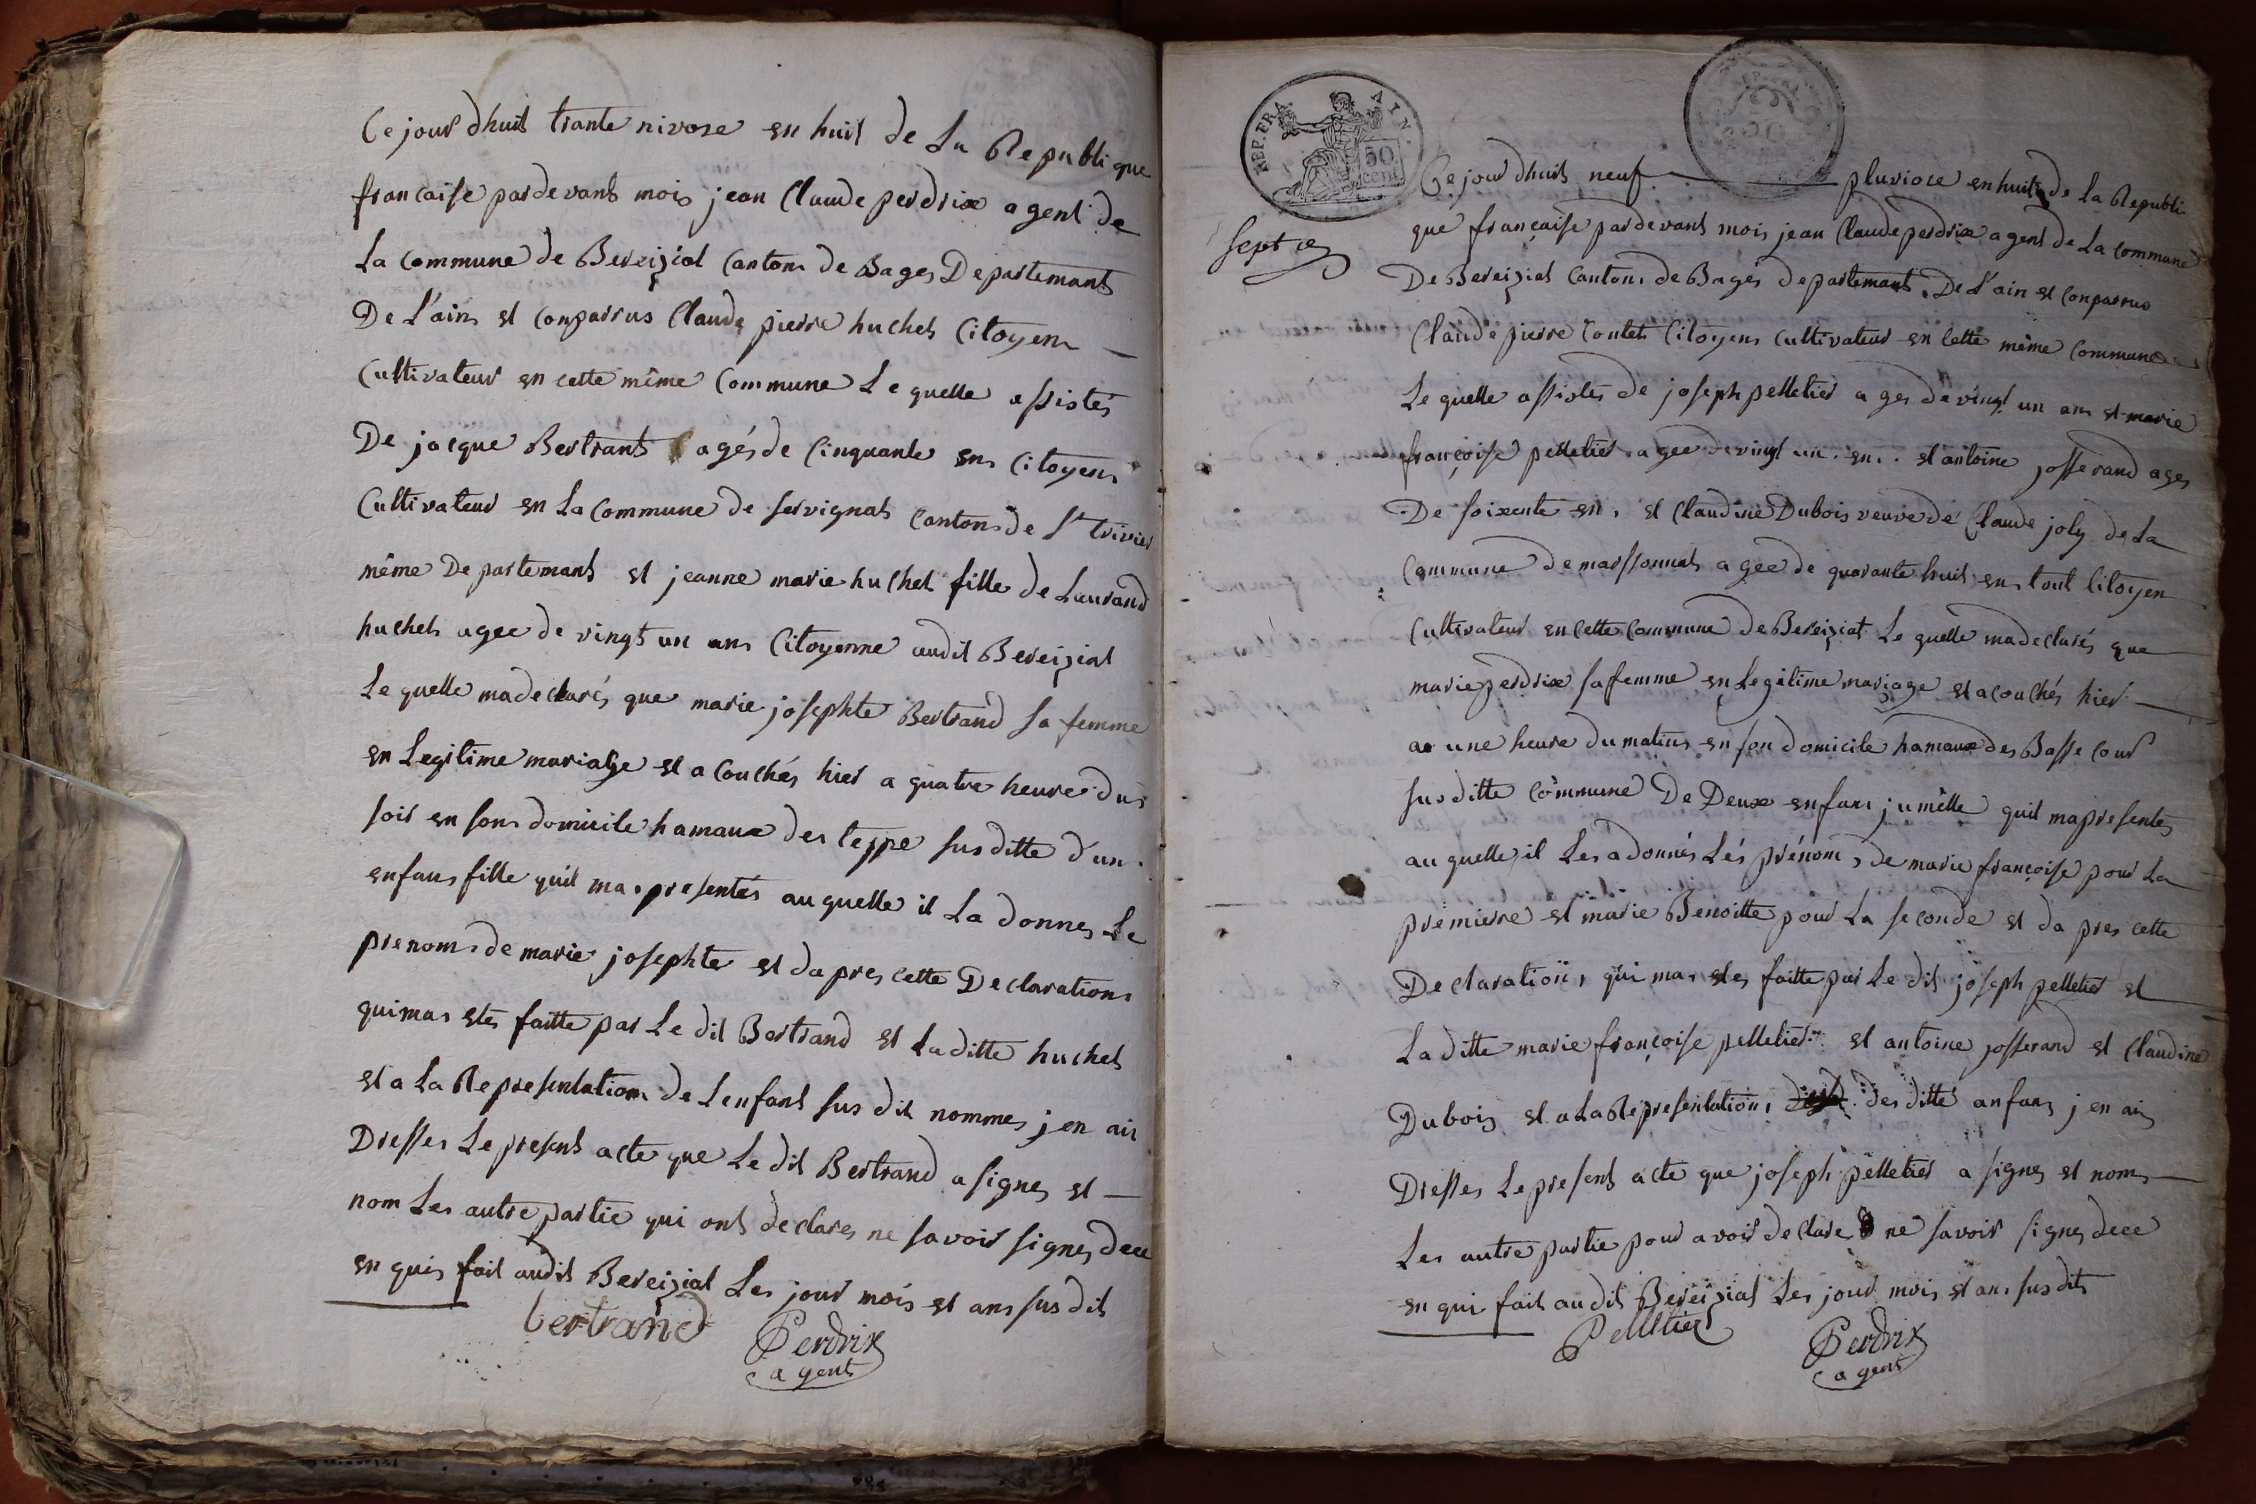 Ce jour dhuit trante nivose en huit de La Republique
francaise pardevant mois jean Claude perdrix agent de
La Commune de Bereiziat Canton de Bages Departemant
De L'ain et Comparrus Claude pierre huchet Citoyen
Cultivateur en cette même Commune Le quelle assistés
De jacque Bertrant agés de Cinquante ens Citoyens
Cultivateur en La Commune de servignat Canton de St trivier
même Departemant et jeanne marie huchet fille de Laurand
huchet agee de vingt un ans Citoyenne audit Bereiziat
Le quelle ma declarés que marie josephte Bertrand sa femme
en Legitime mariage et a Couchés hier a quatre heure du
soir en son domicile hamaux des teppe susditte d'un
enfans fille quil ma presentés au quelle il La donnes Le
prenom de marie josephte et dapres cette Declaration
qui mas etés faitte par Le dit Bertrand et La ditte huchet
et a La Representation de Lenfant sus dit nommes jen ais
Dresses Le present acte que Le dit Bertrand a signes et
nom Les autre partie qui ont declares ne savoir signes dece
en quis fait audit Bereiziat Les jour mois et ans sus dit
bertrand
Perdrix
agent
REP. FRA. AIN.
50
cent
sept
Ce jour dhuit neuf pluviose en huit de La Republi
que française pardevant mois jean Claude perdrix agent de La Commune
De Bereiziat Canton de Bages departemant De L'ain et Comparrus
Claude pierre Contet Citoyens Cultivateur en Cette même Commune
Le quelle assistés de joseph pelletier ages de vingt un ans et marie
françoise pelletier agee de vingt un en et antoine josserand ages
De soixente en et Claudine Dubois veuve de Claude joly de La
Commune de marssonnat agee de quarante huit ens tout Citoyen
Cultivateur en Cette Commune de Bereiziat Le quelle ma declarés que
marie perdrix sa femme en Legitime mariage et a couchés hier
a une heure du matin en son domicile hamaux des Basse Cour
susditte Commune De Deux enfans jumelle quil ma presentes
au quelle il Les a donnés Lés prénom de marie françoise pour La
premierre et marie Benoitte pour La seconde et dapres cette
Declaration qui mas etes faitte par Le dit joseph pelletier et
La ditte marie françoise pelletier et antoine josserand et Claudine
Dubois et a La Representation des ditte anfans jen ais
Dresses Le present acte que joseph pelletier a signes et nom
Les autre partie pour avoir declare ne savoir signes dece
en qui fait au dit Bereiziat Les jour mois et ans sus dits
Pelletier
Perdrix
agent